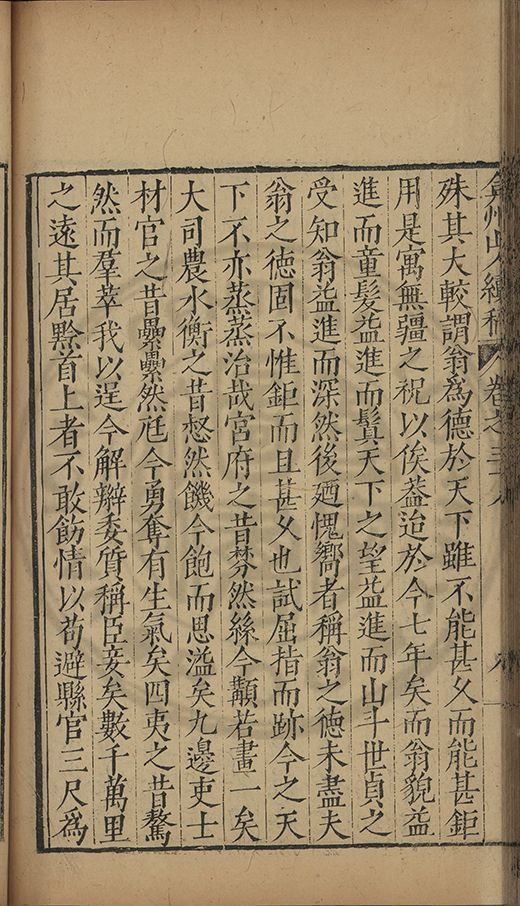 弇州山人續稿 卷之三十八
殊其大較謂翁爲德於天下雖不能甚久而能甚鉅
用是寓無疆之祝以俟葢迨於今七年矣而翁貌益
進而童髮益進而鬒天下之望益進而山斗世貞之
受知翁益進而深然後廼愧嚮者稱翁之德未盡夫
翁之德固不惟鉅而且甚久也試屈指而跡今之天
下不亦蒸蒸治哉宮府之昔棼然絲今顜若畫一矣
大司農水衡之昔惄然饑今飽而思溢矣九邊吏士
材官之昔纍纍然尫今勇奪有生氣矣四夷之昔驁
然而羣萃我以逞今解辮委質稱臣妾矣數千萬里
之遠其居黔首上者不敢飭情以苟避縣官三尺爲